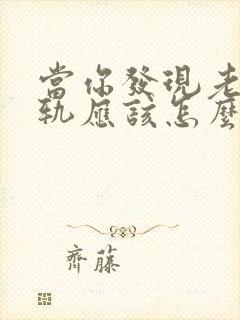 當你發現老
軌應該怎麼
齊藤